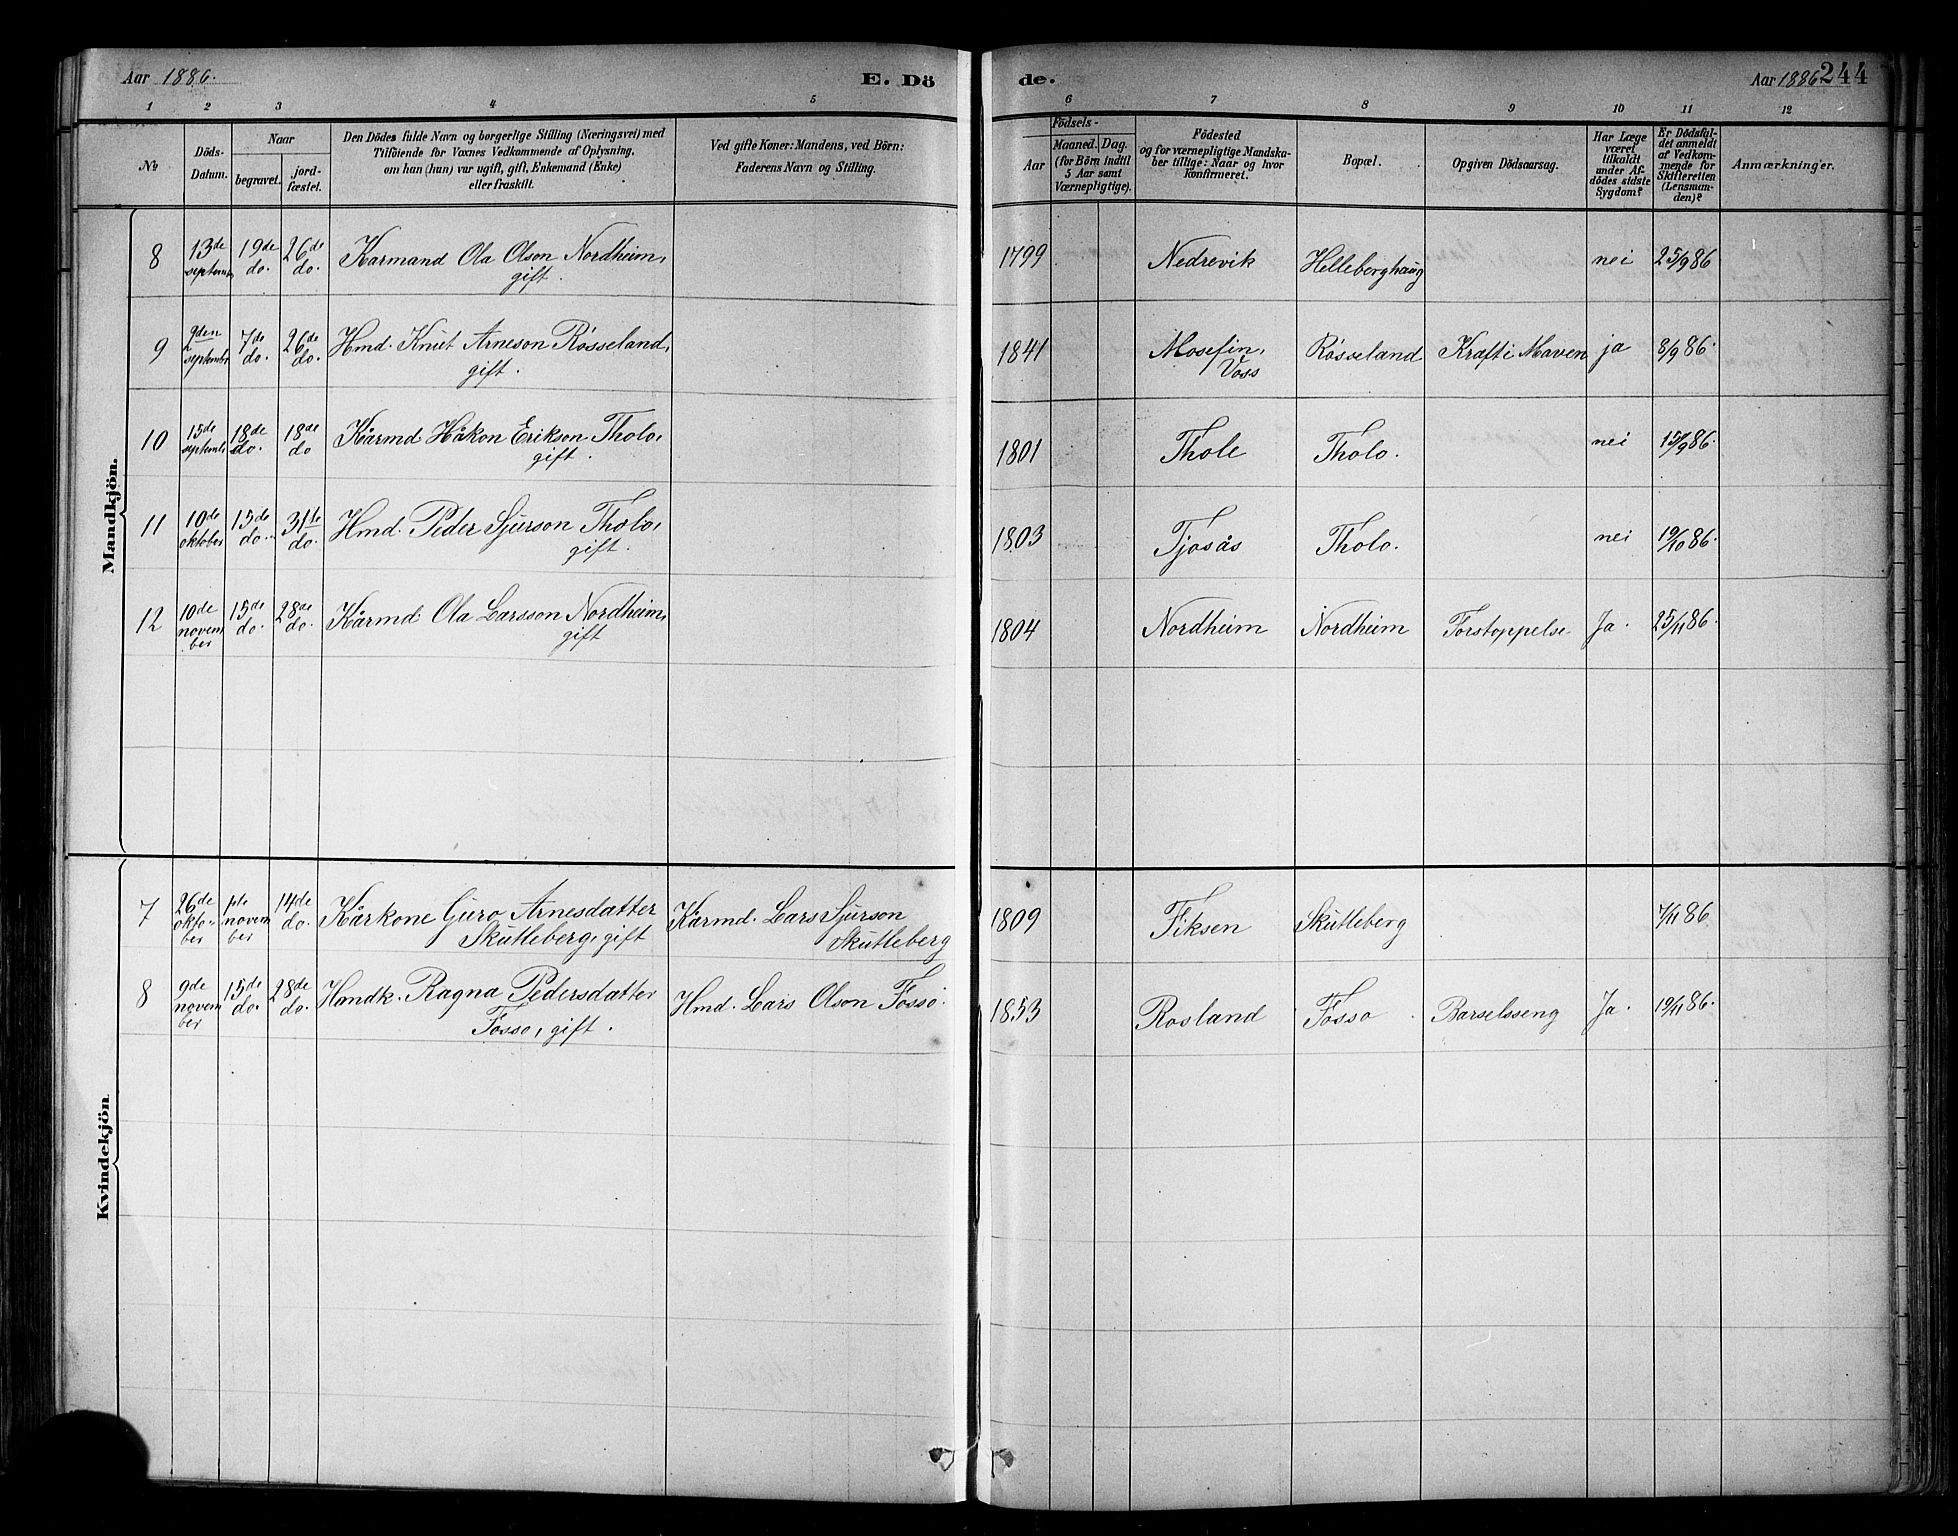 Aar 1886.
E. Dö
de.
Aar 1886
244
1 2 3 4 5 6 7 8 9 10 11 12
No
Döds-
Datum.
Naar
begravet.
jord-
fæstet.
Den Dödes fulde Navn og borgerlige Stilling (Næringsvei) med
Tilföiende for Voxnes Vedkommende af Oplysning,
om hun (han) var ugift, gift, Enkemand (Enke)
eller fraskilt.
Ved gifte Koner: Mandens, ved Börn:
Faderens Navn og Stilling.
Födsels-
Aar
Maaned. Dag.
(for Börn indtil
5 Aar samt
Værnepligtige).
Födested
og for værnepligtige Mandska-
ber tillige: Naar og hvor
Konfirmeret.
Bopæl.
Opgiven Dödsaarsag.
Har Læge
været
tilkaldt
under Af-
dödes sidste
Sygdom?
Er Dödsfal-
det anmeldt
af Vedkom-
mende for
Skifteretten
(Lensman-
den)?
Anmærkninger.
Mandkjön.
8 13de septembr 19de do. 26de do. Karmand Ola Olson Nordheim, gift. 1799 Nedrevik Helleberghaug nei 25/9 86
9 2den septembr 7de do. 26de do. Hmd. Knut Arneson Rösseland, gift. 1841 Mosefin, Voss Rösseland Kræft i Maven ja 8/9 86.
10 15de septembr 18de do. 18de do Kårmd Håkon Erikson Tholo, gift. 1801 Thole Tholo. nei 15/9 86.
11 10de oktober 15de do. 31te do. Hmd. Peder Sjurson Tholo, gift. 1803 Tjosås Tholo. nei 19/10 86.
12 10de november 15de do. 28de do. Kårmd. Ola Larsson Nordheim, gift 1804 Nordheim Nordheim Forstoppelse Ja. 25/11 86.
Kvindekjön
7 26de oktober 1ste november 14de do. Kårkone Guro Arnesdatter Skutleberg, gift Kårmd. Lars Sjurson Skutleberg 1809 Fiksen Skutleberg 7/11 86
8 9de november 15de do. 28de do. Hmdk. Ragna Pedersdatter Fosso, gift. Hmd. Lars Olson Fosso. 1853 Rosland Fosso Barselsseng Ja. 19/11 86.